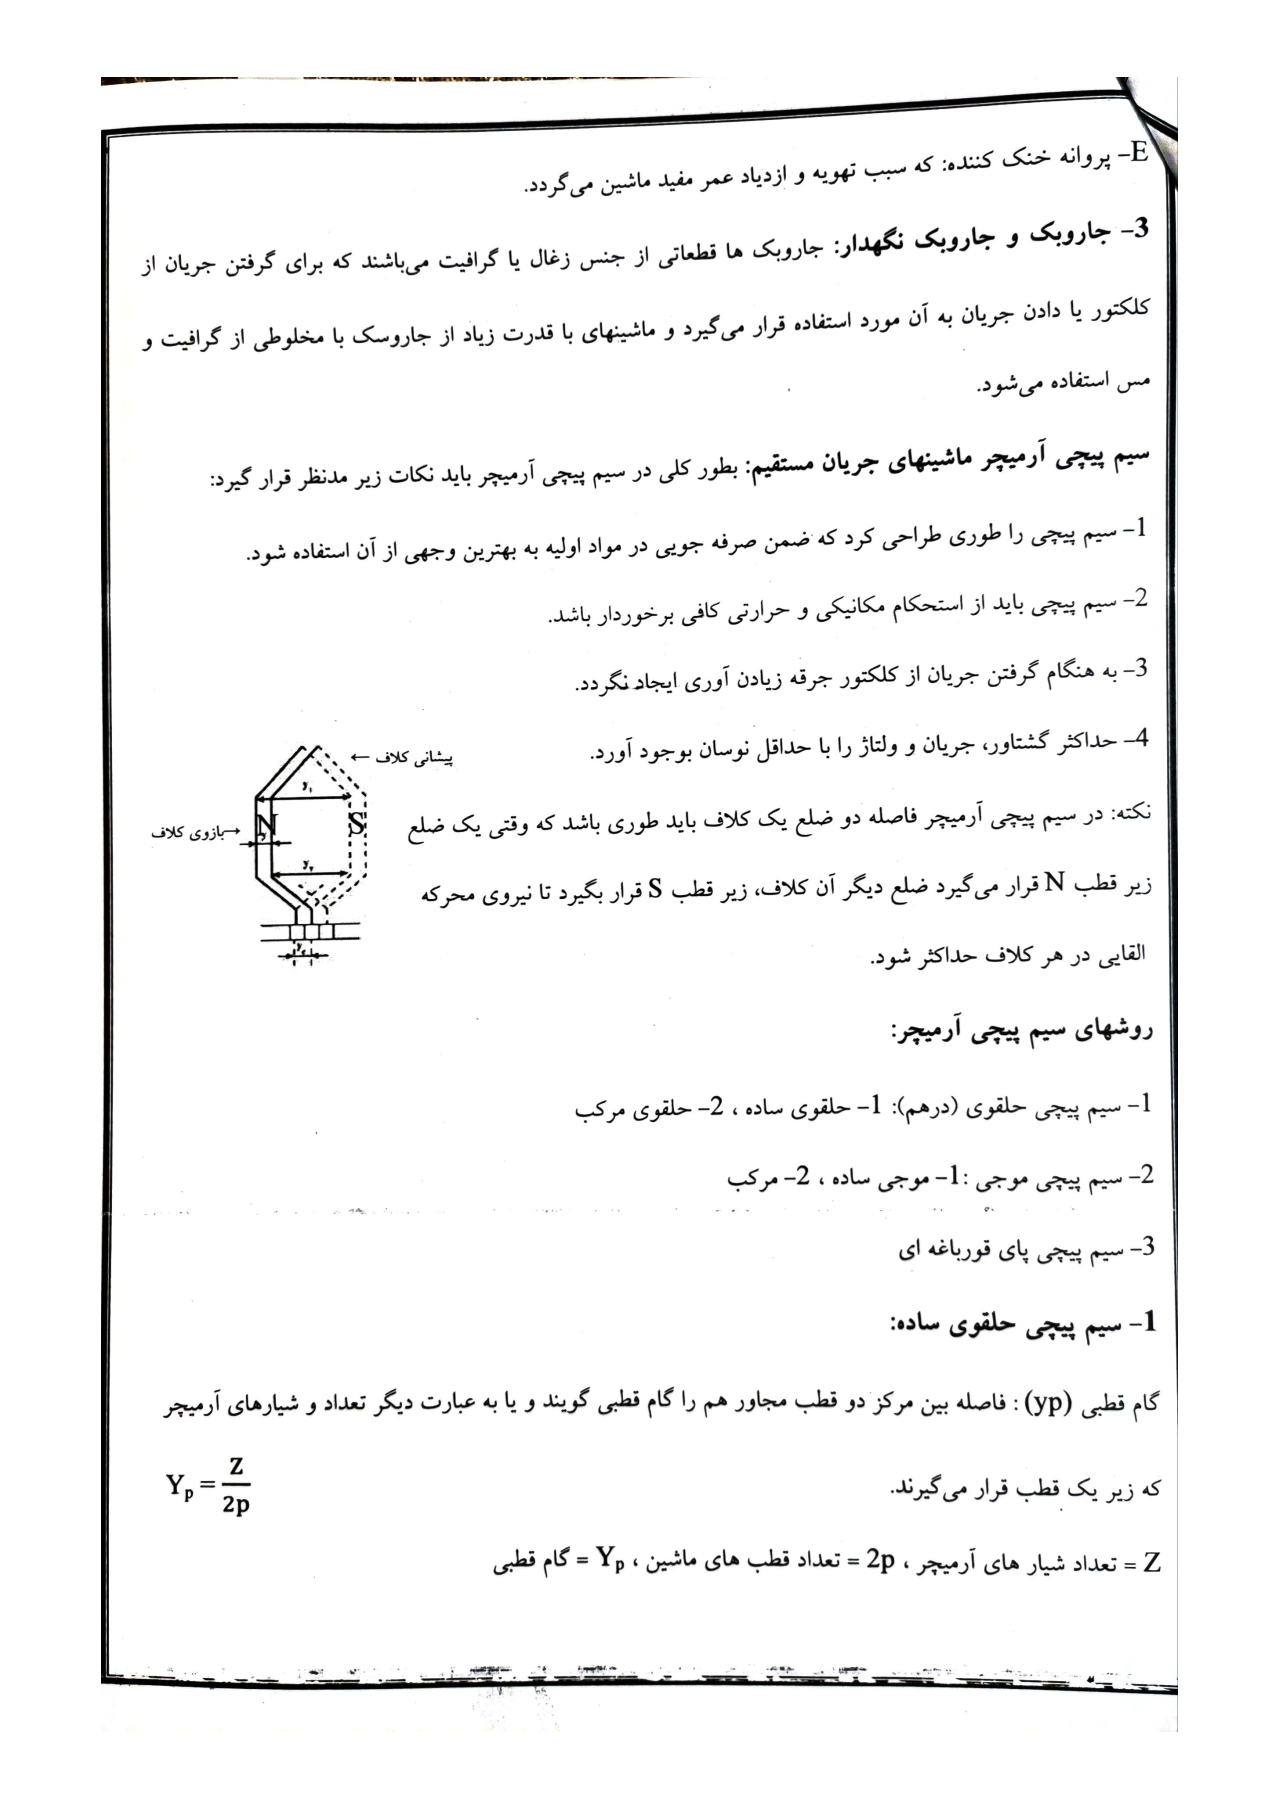 E- پروانه خنک کننده: که سبب تهویه و ازدیاد عمر مفید ماشین می‌گردد.
3- جاروبک و جاروبک نگهدار: جاروبک ها قطعاتی از جنس زغال یا گرافیت می‌باشند که برای گرفتن جریان از
کلکتور یا دادن جریان به آن مورد استفاده قرار می‌گیرد و ماشینهای با قدرت زیاد از جاروسک با مخلوطی از گرافیت و
مس استفاده می‌شود.
سیم پیچی آرمیچر ماشینهای جریان مستقیم: بطور کلی در سیم پیچی آرمیچر باید نکات زیر مدنظر قرار گیرد:
1- سیم پیچی را طوری طراحی کرد که ضمن صرفه جویی در مواد اولیه به بهترین وجهی از آن استفاده شود.
2- سیم پیچی باید از استحکام مکانیکی و حرارتی کافی برخوردار باشد.
3- به هنگام گرفتن جریان از کلکتور جرقه زیادن آوری ایجاد نگردد.
4- حداکثر گشتاور، جریان و ولتاژ را با حداقل نوسان بوجود آورد.
پیشانی کلاف ←
y۱
N
S
→بازوی کلاف
y۲
نکته: در سیم پیچی آرمیچر فاصله دو ضلع یک کلاف باید طوری باشد که وقتی یک ضلع
زیر قطب N قرار می‌گیرد ضلع دیگر آن کلاف، زیر قطب S قرار بگیرد تا نیروی محرکه
القایی در هر کلاف حداکثر شود.
روشهای سیم پیچی آرمیچر:
1- سیم پیچی حلقوی (درهم): 1- حلقوی ساده ، 2- حلقوی مرکب
2- سیم پیچی موجی :1- موجی ساده ، 2- مرکب
3- سیم پیچی پای قورباغه ای
1- سیم پیچی حلقوی ساده:
گام قطبی (yp) : فاصله بین مرکز دو قطب مجاور هم را گام قطبی گویند و یا به عبارت دیگر تعداد و شیارهای آرمیچر
که زیر یک قطب قرار می‌گیرند.
Yp = Z/2p
Z = تعداد شیار های آرمیچر ، 2p = تعداد قطب های ماشین ، Yp = گام قطبی